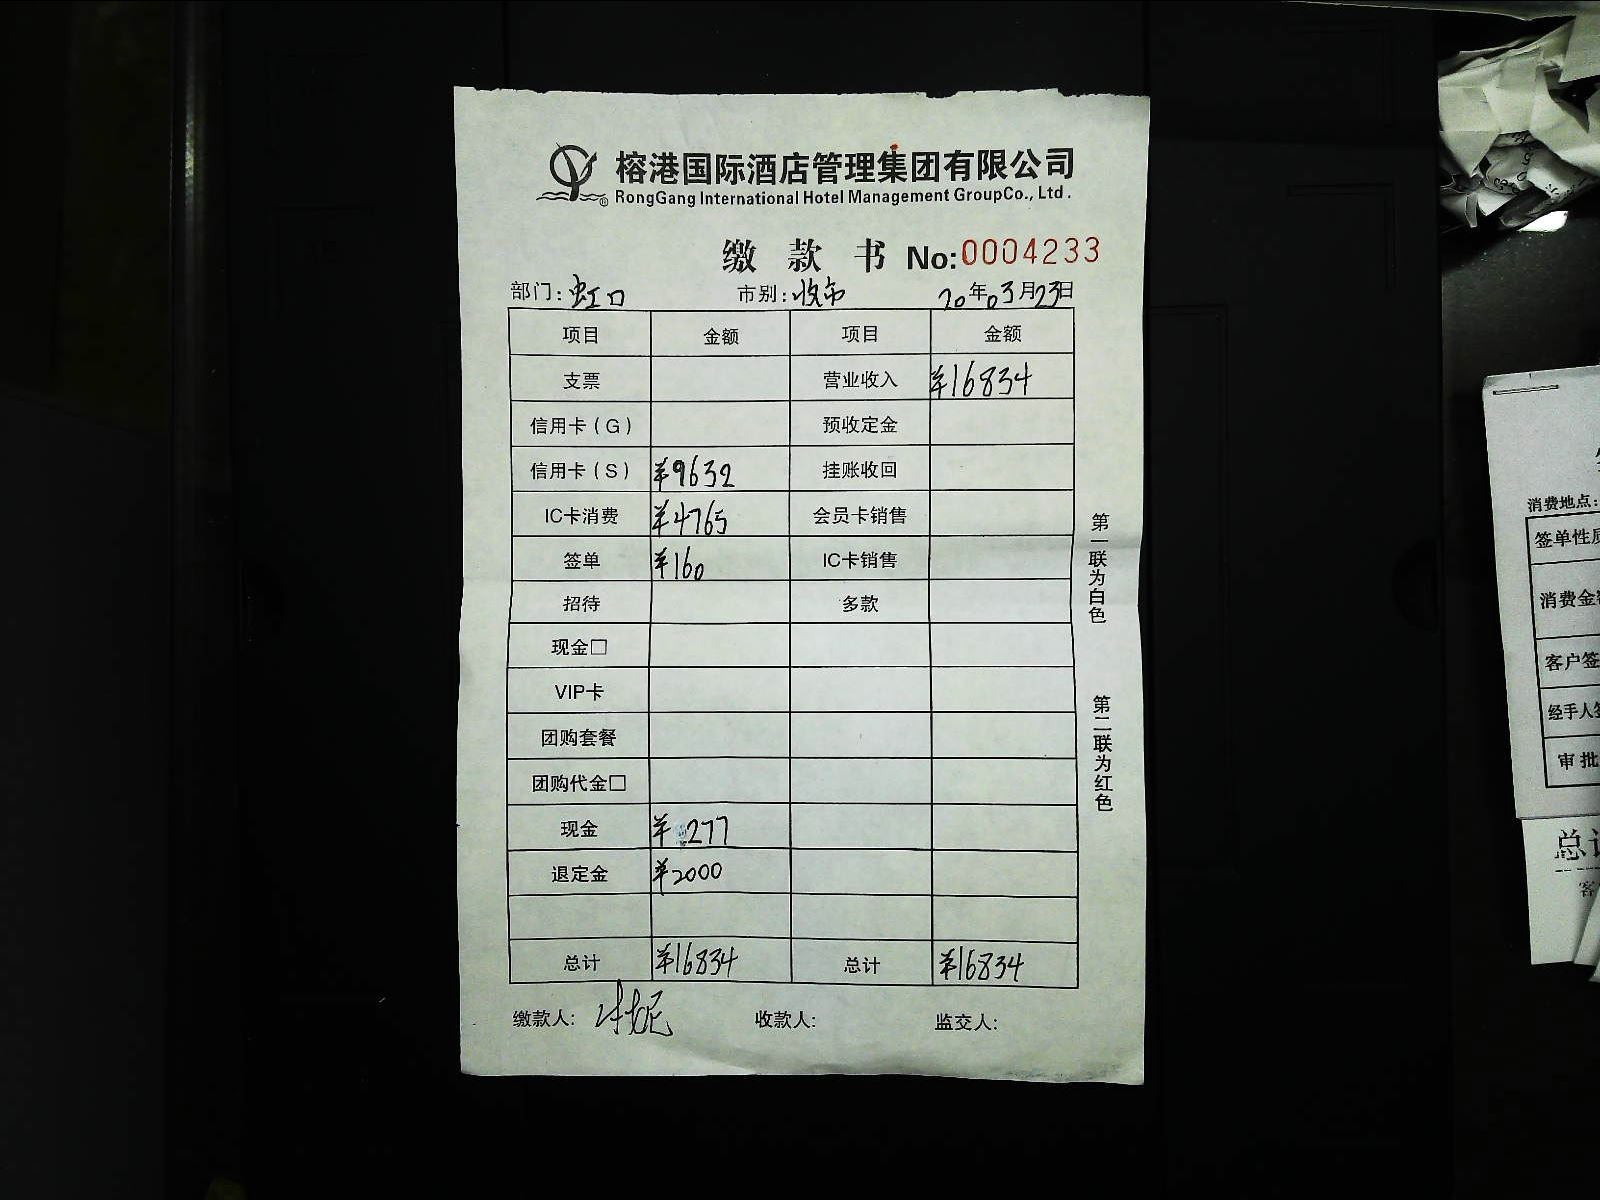 榕港国际酒店管理集团有限公司
® RongGang International Hotel Management GroupCo., Ltd.
缴 款 书 No:0004233
部门: 虹口 市别: 收市 20年03月23日
项目 金额 项目 金额
支票 营业收入 ¥16834
信用卡(G) 预收定金
信用卡(S) ¥9632 挂账收回
IC卡消费 ¥4765 会员卡销售
签单 ¥160 IC卡销售
招待 多款
现金□
VIP卡
团购套餐
团购代金□
现金 ¥277
退定金 ¥2000
总计 ¥16834 总计 ¥16834
缴款人: 收款人: 监交人:
第一联为白色
第二联为红色
消费地点:
签单性质
消费金
客户签
经手人
审批
总
客